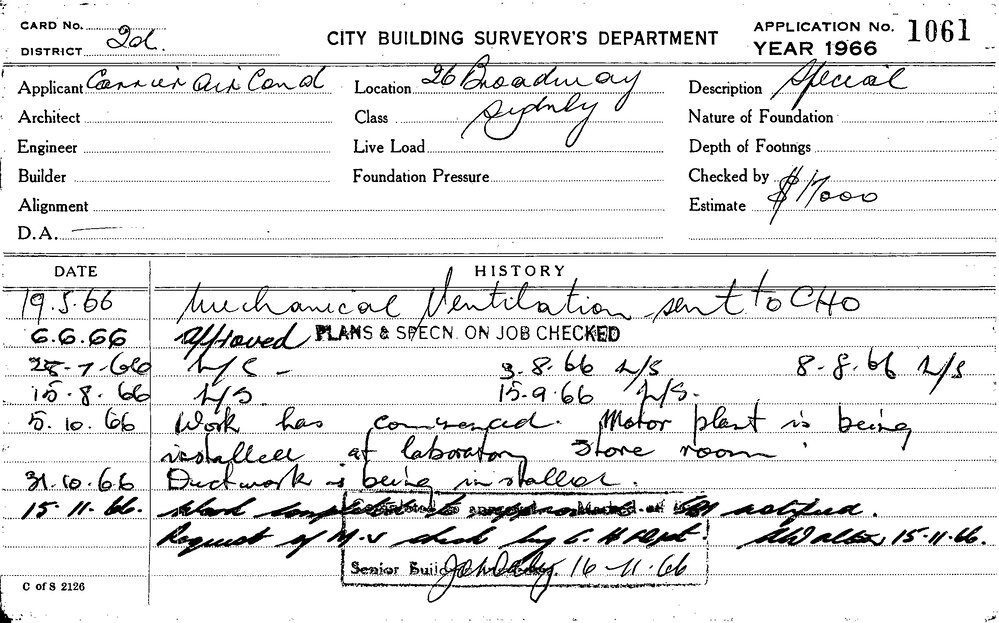 CARD No.
DISTRICT 2d.
CITY BUILDING SURVEYOR'S DEPARTMENT
APPLICATION No. 1061
YEAR 1966
Applicant Carrier Air Cond
Location 26 Broadway
Sydney
Description Special
Architect
Class
Nature of Foundation
Engineer
Live Load
Depth of Footings
Builder
Foundation Pressure
Checked by
Alignment
Estimate $17000
D.A.
DATE HISTORY
19.5.66 Mechanical Ventilation sent to CHO
6.6.66 Approved PLANS & SPECN. ON JOB CHECKED
28.7.66 N/S - 3.8.66 N/S 8.8.66 N/S
15.8.66 N/S. 15.9.66 N/S.
5.10.66 Work has commenced. Motor plant is being
installed at laboratory store room
31.10.66 Ductwork is being installed.
15.11.66. Work completed to notified.
Request of M.V check by C.H Dept. 15.11.66.
Senior 16-11-66
C of S 2126